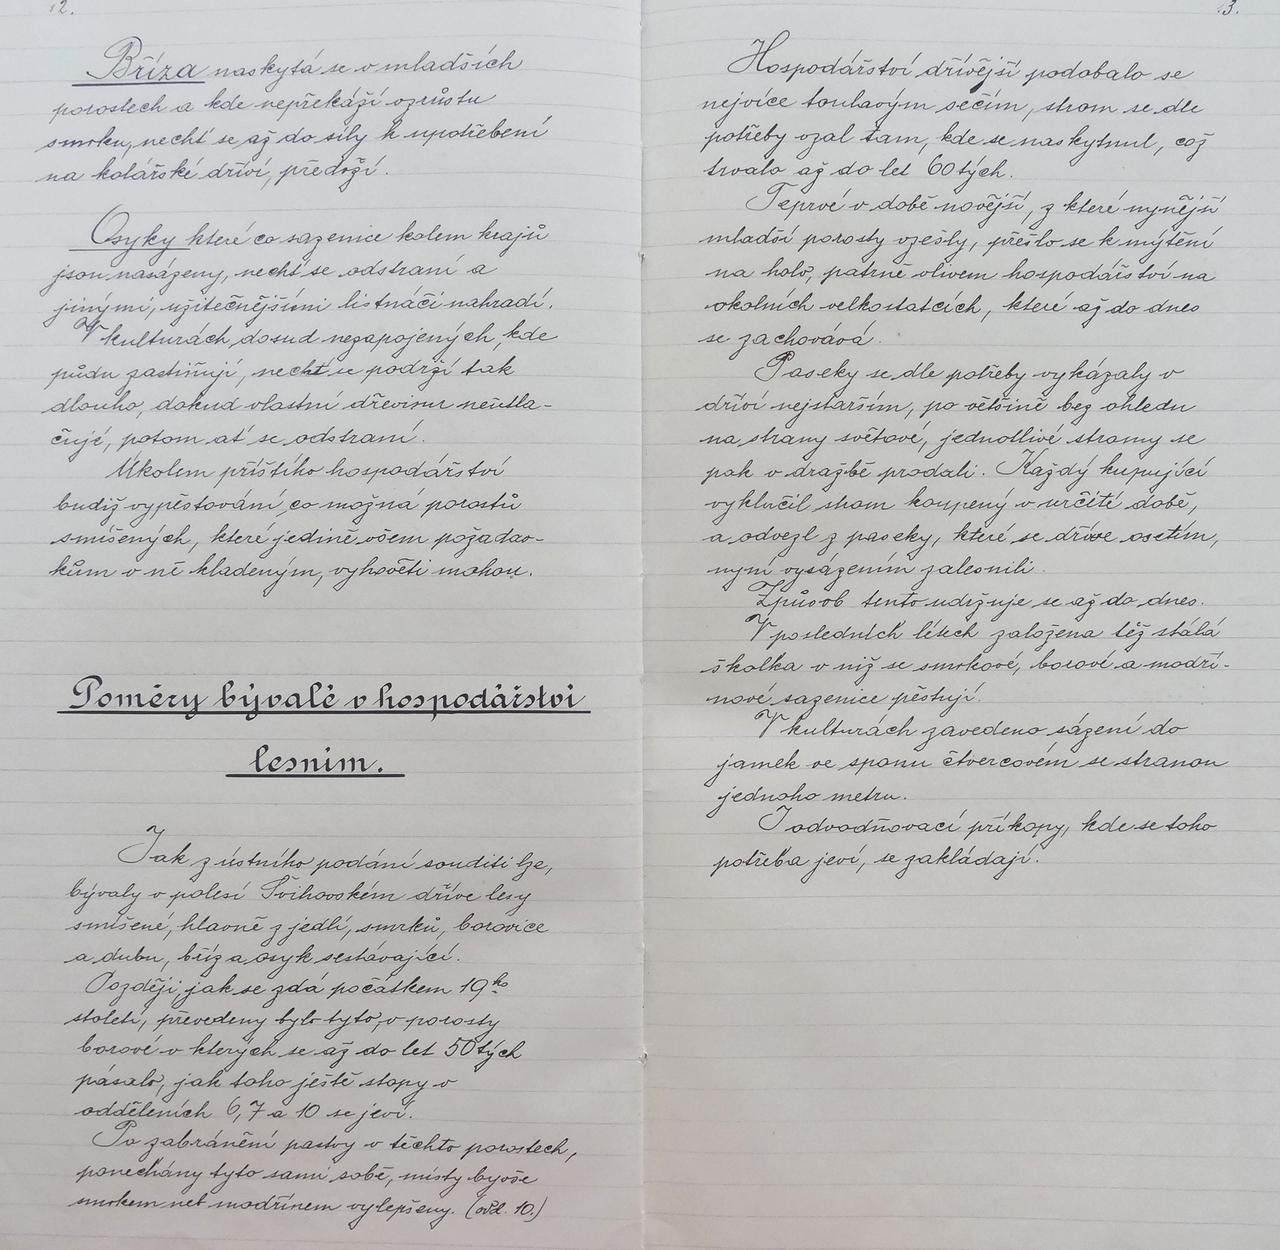 12.
Bříza naskytá se v mladších
porostech a kde nepřekáží vzrůstu
smrku, nechť se až do síly k upotřebení
na kolářské dříví, předrží.
Osyky které co sazenice kolem krajů
jsou nasázeny, nechť se odstraní a
jinými, užitečnějšími listnáči nahradí.
V kulturách dosud nezapojených, kde
půdu zastiňují, nechť se podrží tak
dlouho, dokud vlastní dřevinu neutla-
čují, potom ať se odstraní.
Úkolem příštího hospodářství
budiž vypěstování co možná porostů
smíšených, které jedině všem požadav-
kům v ně kladeným, vyhověti mohou.
Poměry bývalé v hospodářství
lesním.
Jak z ústního podání souditi lze,
bývaly v polesí Švihovském dříve lesy
smíšené, hlavně z jedlí, smrků, borovice
a dubu, bříz a osyk sestávající.
Později, jak se zdá počátkem 19ho
století, převedeny byly tyto, v porosty
borové v kterých se až do let 50tých
pásalo, jak toho ještě stopy v
odděleních 6, 7 a 10 se jeví.
Po zabránění pastvy v těchto porostech,
ponechány tyto sami sobě, místy byvše
smrkem neb modřínem vylepšeny. (odd. 10.)
13.
Hospodářství dřívější podobalo se
nejvíce toulavým sečím, strom se dle
potřeby vzal tam, kde se naskytnul, což
trvalo až do let 60tých.
Teprvé v době novější, z které nynější
mladší porosty vzešly, přešlo se k mýtění
na holo, patrně vlivem hospodářství na
okolních velkostatcích, které až do dnes
se zachovává.
Paseky se dle potřeby vykázaly v
dříví nejstarším, po většině bez ohledu
na strany světové, jednotlivé stromy se
pak v dražbě prodali. Každý kupující
vyklučil strom koupený v určité době,
a odvezl z paseky, které se dříve osetím,
nyní vysázením zalesnili.
Způsob tento udržuje se až do dnes.
V posledních létech založena též stálá
školka v níž se smrkové, borové a modří-
nové sazenice pěstují.
V kulturách zavedeno sázení do
jamek ve sponu čtvercovém se stranou
jednoho metru.
I odvodňovací příkopy, kde se toho
potřeba jeví, se zakládají.